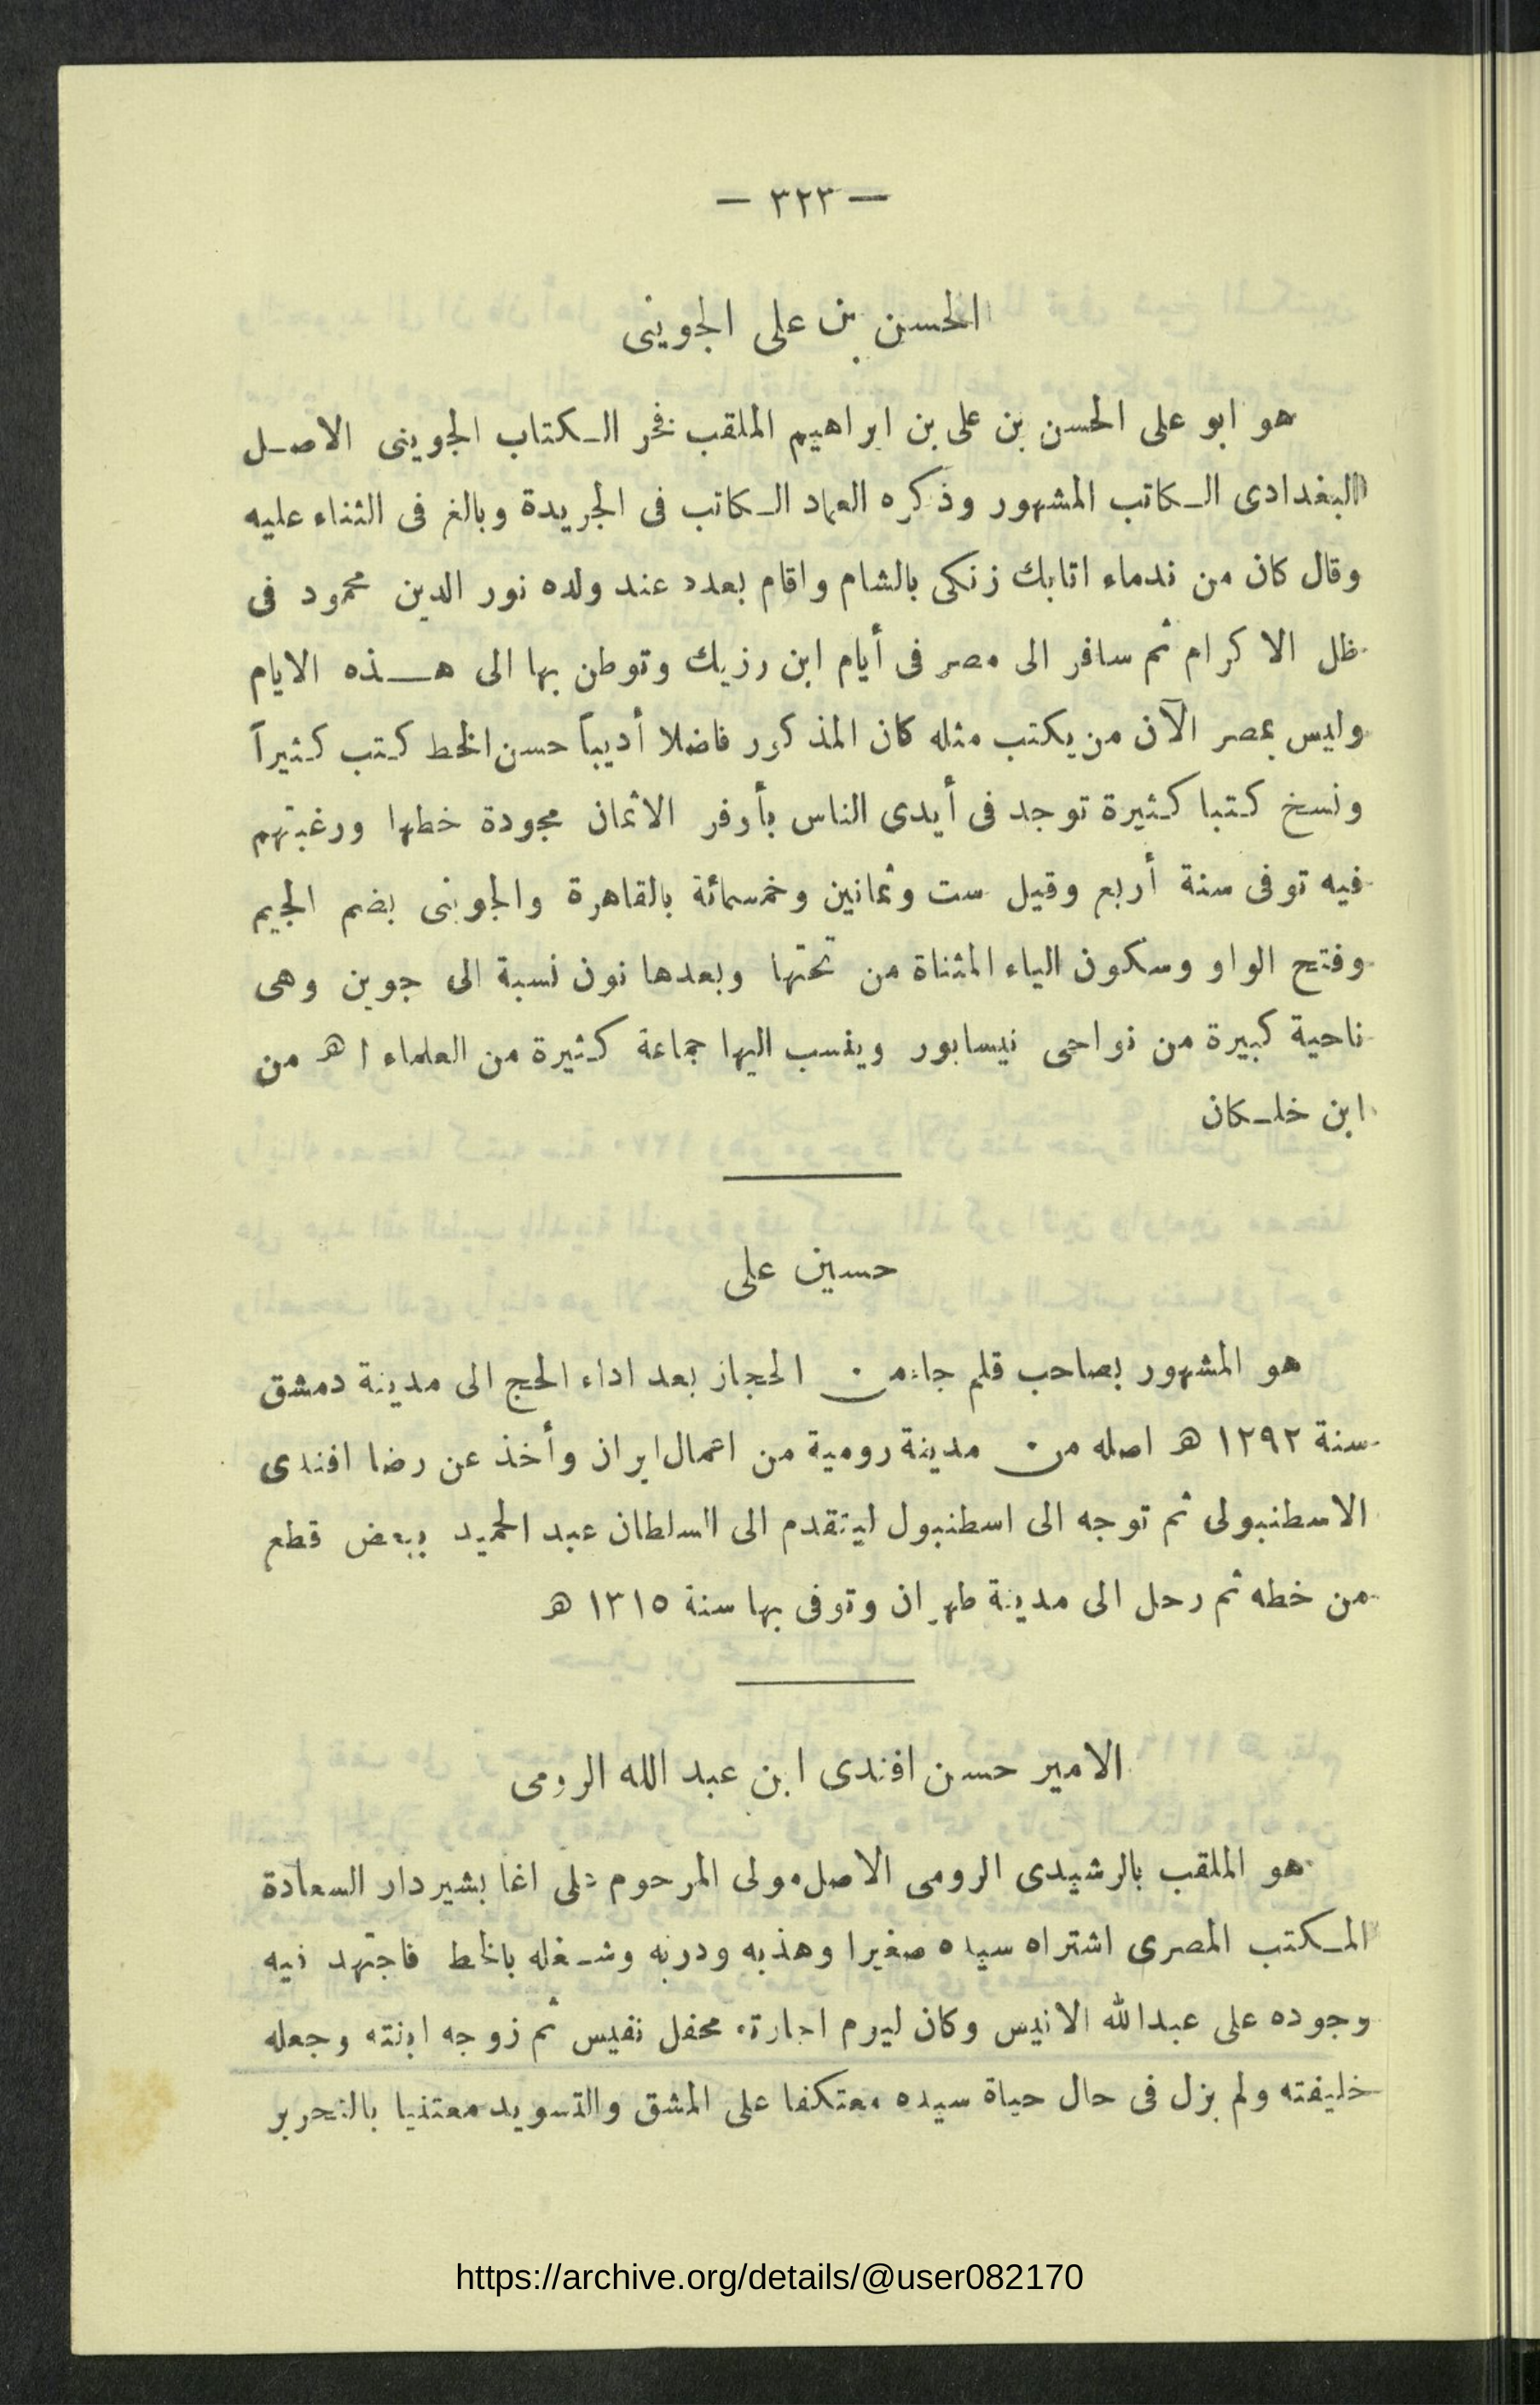 — ٣٢٣ —
الحسن بن على الجوينى
هو ابو على الحسن بن على بن ابراهيم الملقب فخر الكتاب الجوينى الاصل
البغدادى الكاتب المشهور وذكره العماد الكاتب فى الجريدة وبالغ فى الثناء عليه
وقال كان من ندماء اتابك زنكى بالشام واقام بعده عند ولده نور الدين محمود فى
ظل الاكرام ثم سافر الى مصر فى أيام ابن رزيك وتوطن بها الى هذه الايام
وليس بمصر الآن من يكتب مثله كان المذكور فاضلا أديباً حسن الخط كتب كثيراً
ونسخ كتبا كثيرة توجد فى أيدى الناس بأوفر الاثمان مجودة خطها ورغبتهم
فيه توفى سنة أربع وقيل ست وثمانين وخمسمائة بالقاهرة والجوينى بضم الجيم
وفتح الواو وسكون الياء المثناة من تحتها وبعدها نون نسبة الى جوين وهى
ناحية كبيرة من نواحى نيسابور وينسب اليها جماعة كثيرة من العلماء ا هـ من
ابن خلكان
حسين على
هو المشهور بصاحب قلم جاء من الحجاز بعد اداء الحج الى مدينة دمشق
سنة ١٢٩٢ هـ اصله من مدينة رومية من اعمال ايران وأخذ عن رضا افندى
الاسطنبولى ثم توجه الى اسطنبول ليتقدم الى السلطان عبد الحميد ببعض قطع
من خطه ثم رحل الى مدينة طهران وتوفى بها سنة ١٣١٥ هـ
الامير حسن افندى ابن عبد الله الرومى
هو الملقب بالرشيدى الرومى الاصل مولى المرحوم على اغا بشير دار السعادة
المكتب المصرى اشتراه سيده صغيرا وهذبه ودربه وشغله بالخط فاجتهد فيه
وجوده على عبدالله الانيس وكان ليوم اجازته محفل نفيس ثم زوجه ابنته وجعله
خليفته ولم يزل فى حال حياة سيده معتكفا على المشق والتسويد معتنيا بالتحرير
https://archive.org/details/@user082170